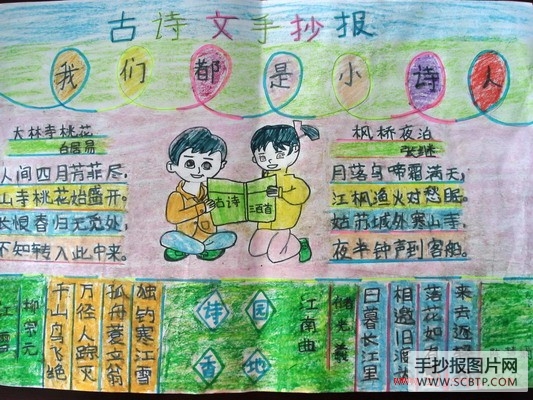 古诗文手抄报
我们都是小诗人
大林寺桃花
白居易
人间四月芳菲尽,
山寺桃花始盛开。
长恨春归无觅处,
不知转入此中来。
古诗
三百首
枫桥夜泊
张继
月落乌啼霜满天,
江枫渔火对愁眠。
姑苏城外寒山寺,
夜半钟声到客船。
江雪
柳宗元
千山鸟飞绝
万径人踪灭
孤舟蓑立翁
独钓寒江雪
诗园
香地
江南曲
储光羲
日暮长江里
相邀归渡
落花如
来去逐
手抄报图片网
WWW.SCBTP.COM